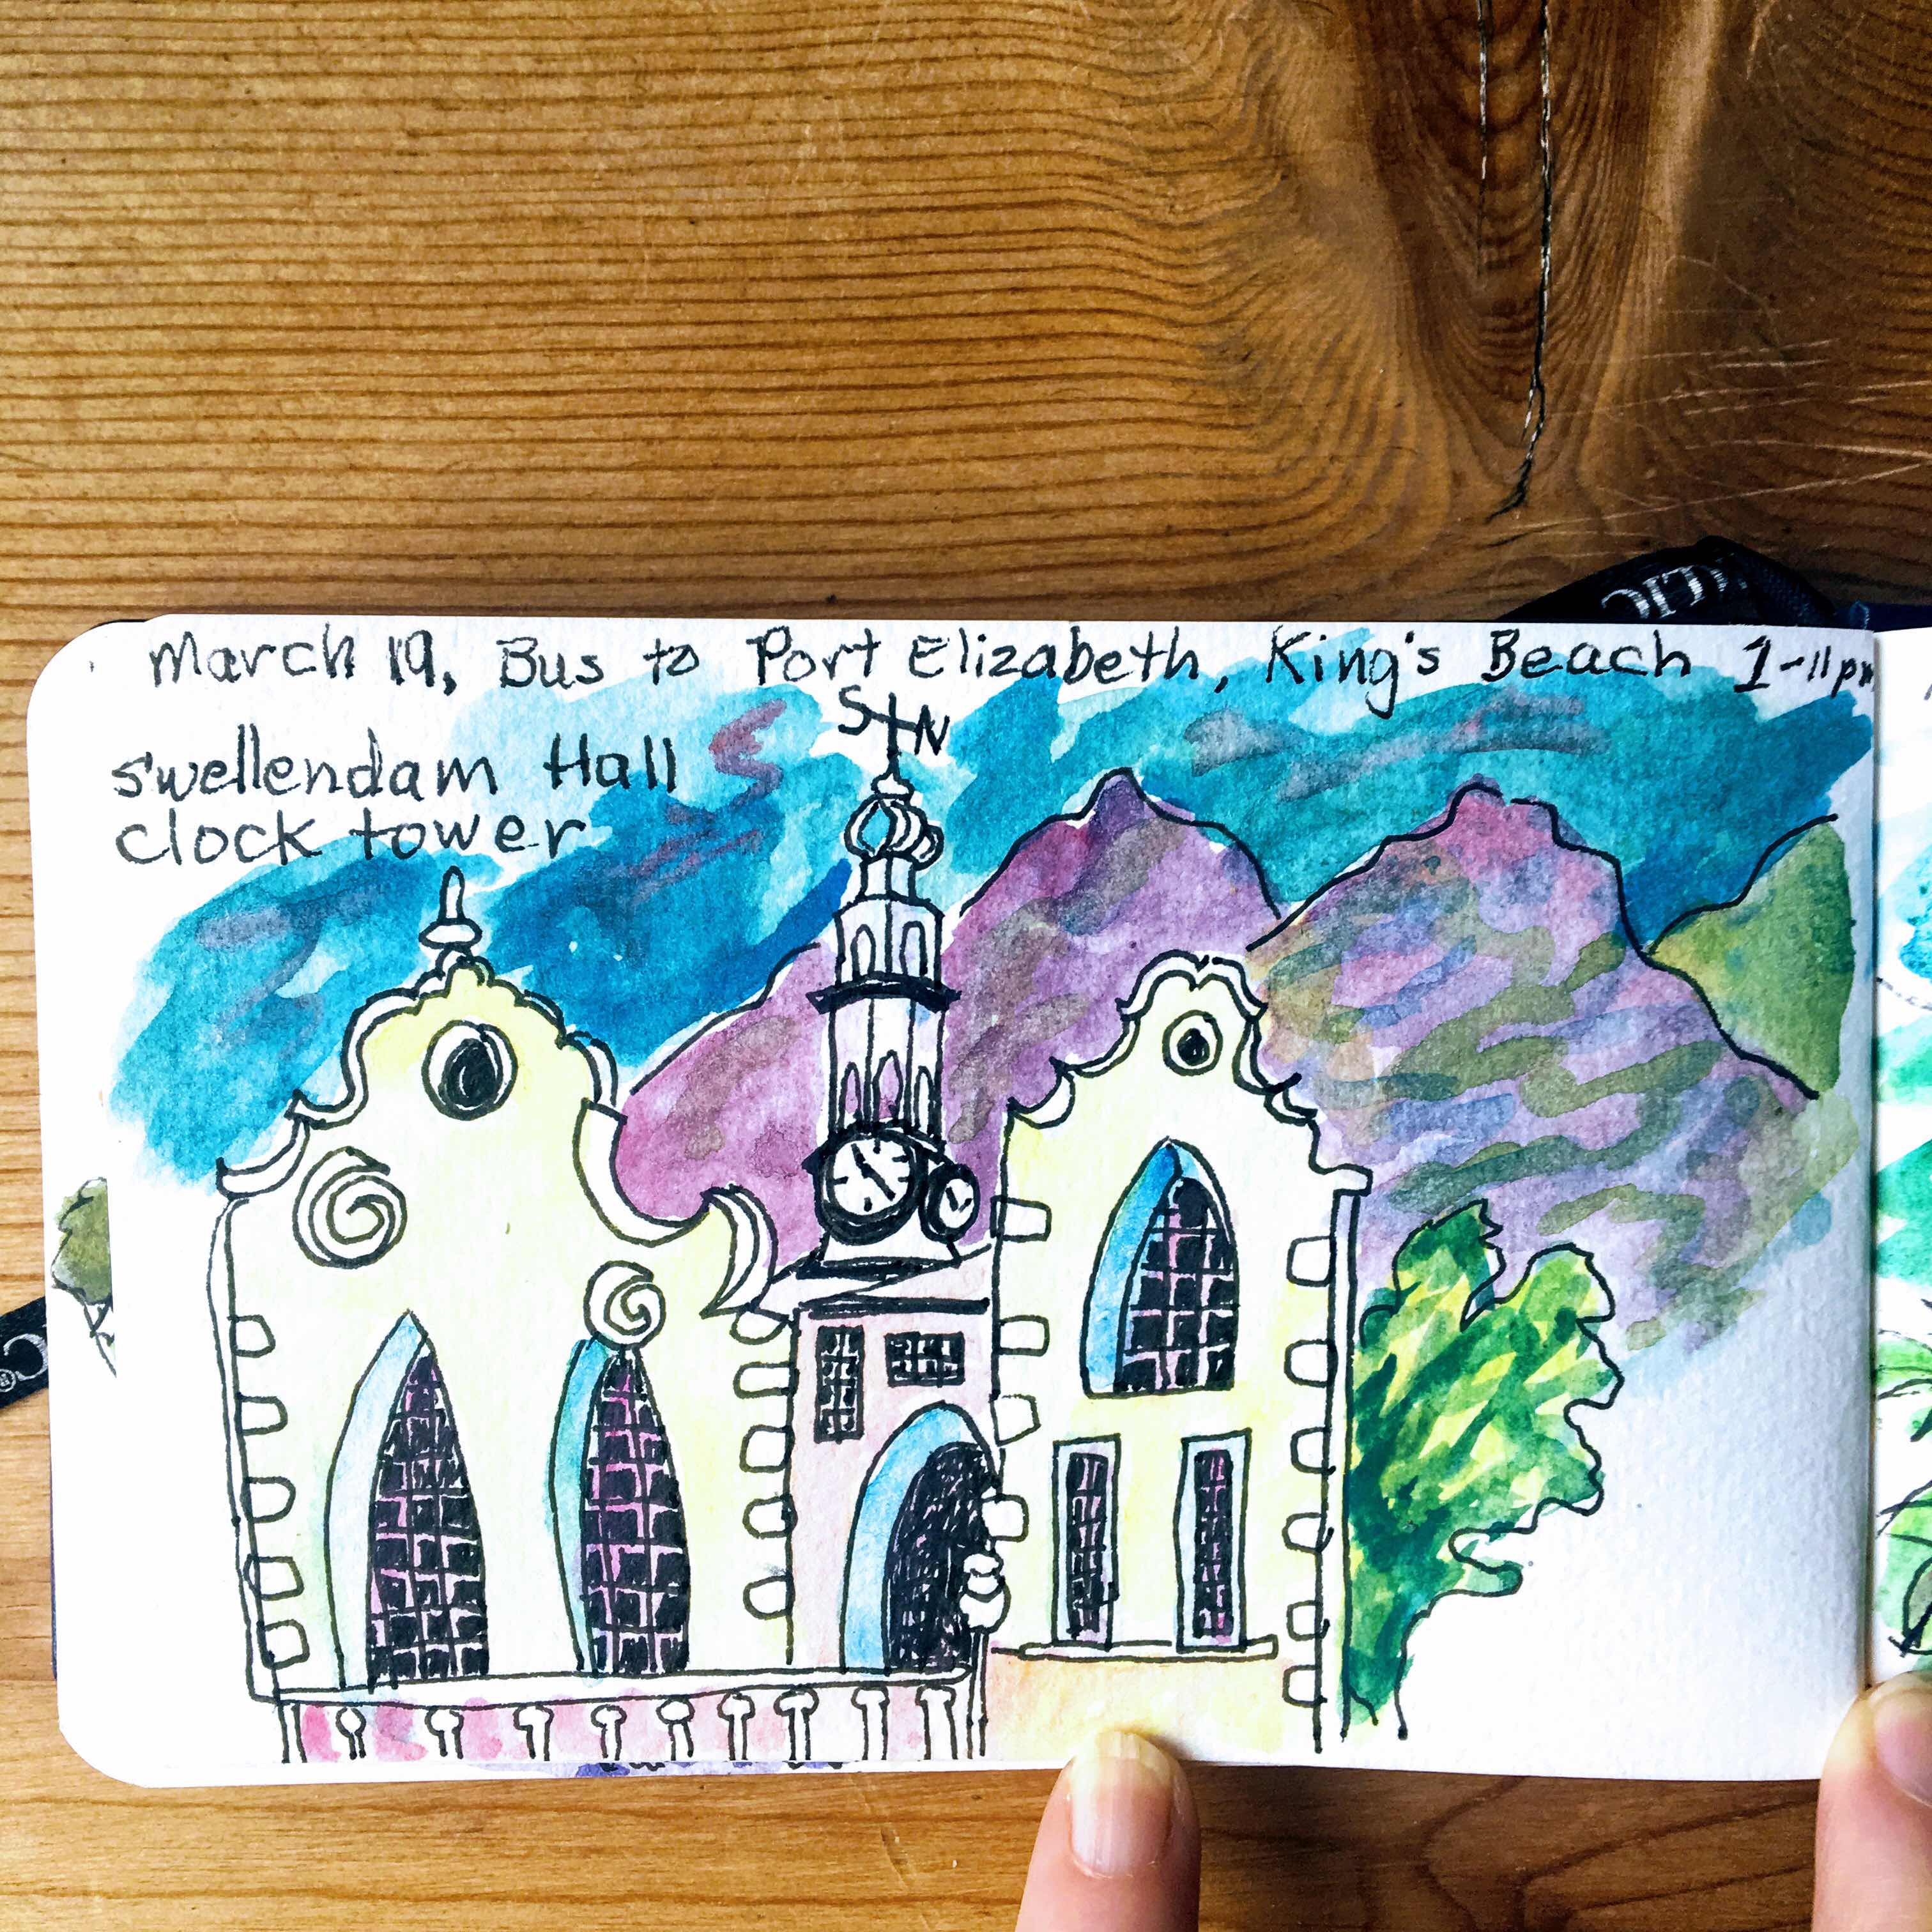 March 19, Bus to Port Elizabeth, King's Beach 1-11pm
Swellendam Hall
clock tower
S N